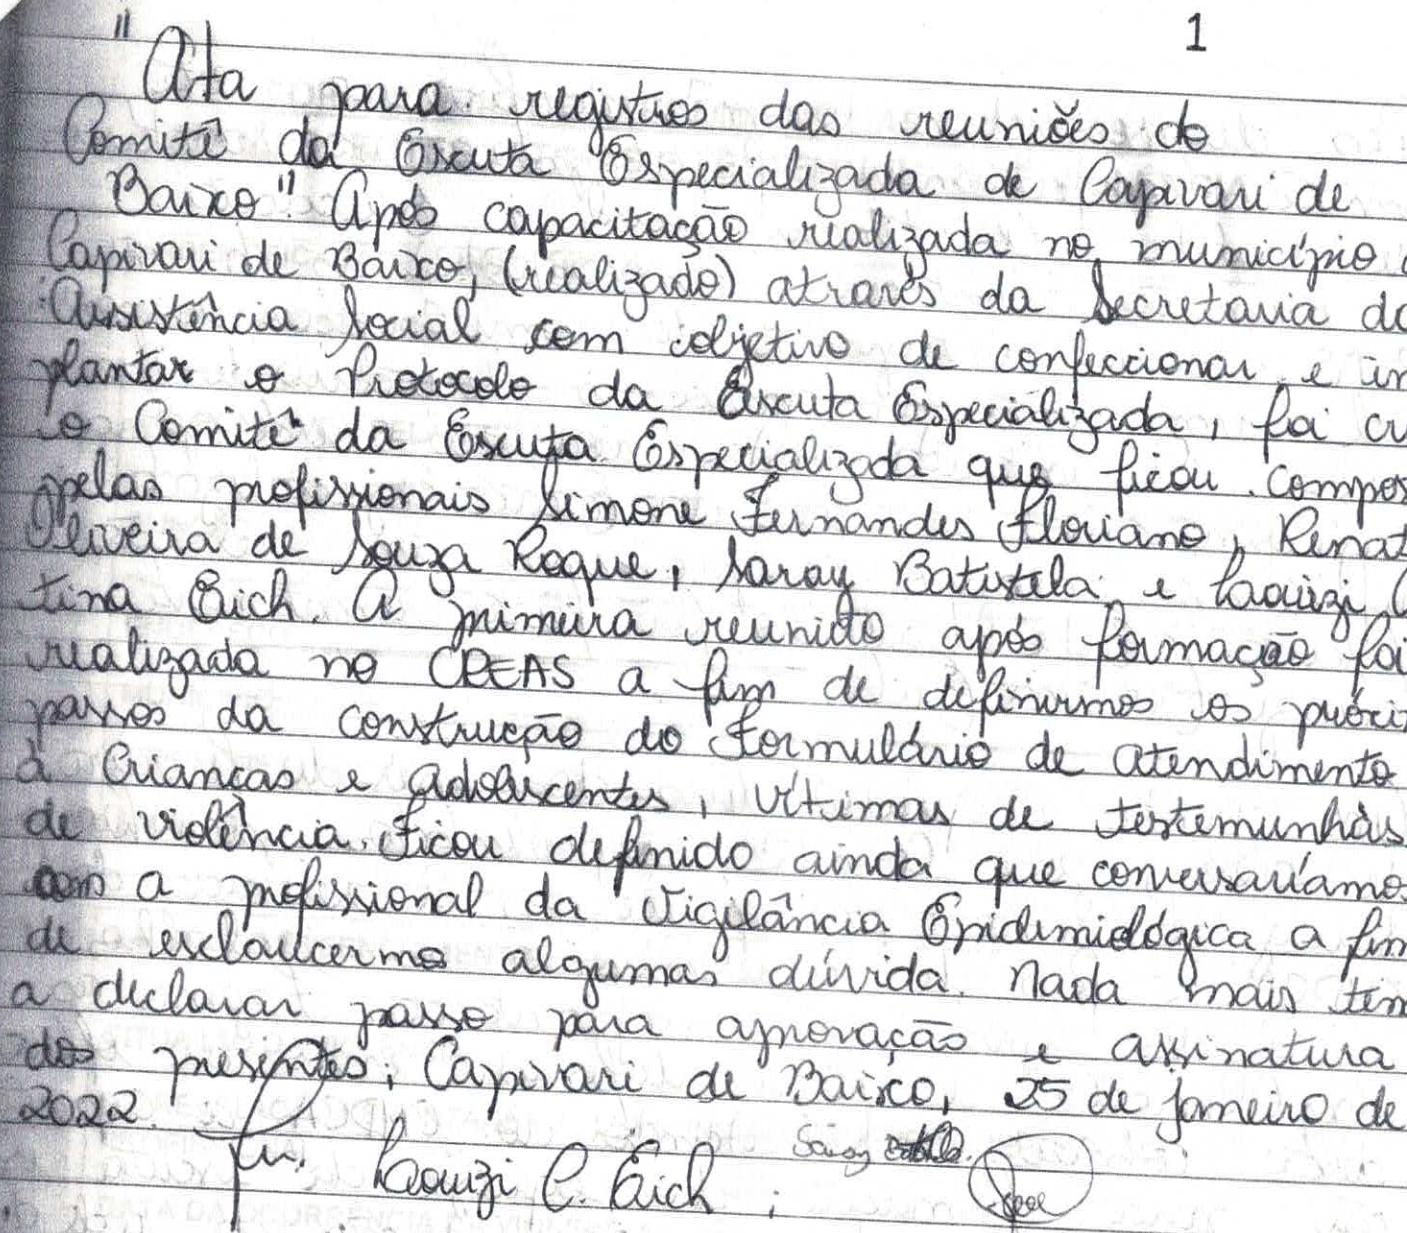 1
"Ata para registros das reuniões do
Comitê da Escuta Especializada de Capivari de
Baixo" Após capacitação realizada no município
Capivari de Baixo, (realizado) através da Secretaria de
Assistência Social com objetivo de confeccionar e im
plantar o Protocolo da Escuta Especializada, foi cri
o Comitê da Escuta Especializada que ficou compos
pelas profissionais Simone Fernandes Floriano, Renat
Oliveira de Souza Roque, Saray Batistela e Laouizi C
tina Eich. A primeira reunião após formação foi
realizada no CREAS a fim de definirmos os próxi
passos da construção do Formulário de atendimento
à Crianças e Adolescentes, vítimas de testemunhas
de violência. Ficou definido ainda que conversaríamos
com a profissional da Vigilância Epidimiológica a fim
de esclarecermos algumas dúvida. Nada mais ten
a declarar passo para aprovação e assinatura
dos presentes; Capivari de Baixo, 25 de janeiro de
2022.
Saray
Laouizi C. Eich ;